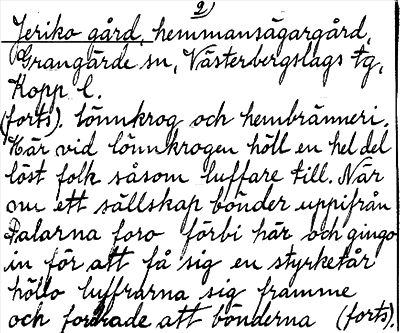 2)
Jeriko gård, hemmansägargård,
Grangärde sn, Västerbergslags tg,
Kopp. l.
(forts). Lönnkrog och hembränneri.
Här vid lönnkrogen höll en hel del
löst folk såsom luffare till. När
nu ett sällskap bönder uppifrån
Dalarna foro förbi här och gingo
in för att få sig en styrketår
höllo luffrarna sig framme
och fordrade att bönderna (forts).